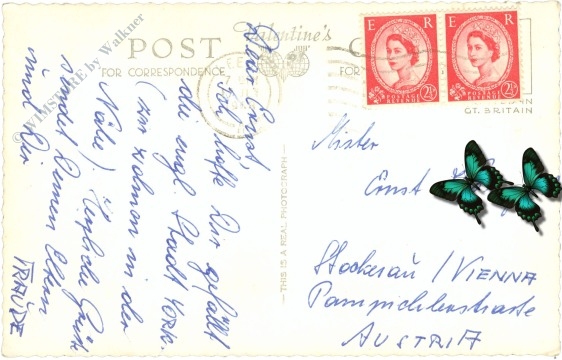 POST
Valentine's
FOR CORRESPONDENCE
© WIMSTORE by Walkner
Lieber Ernst
Ich hoffe Dir gefällt
die engl. Stadt York.
(wir wohnen in der
Nähe). Herzliche Grüße
sendet Deinen Eltern
und Dir
TRAUDE
THIS IS A REAL PHOTOGRAPH
E R
POSTAGE
REVENUE
2½D
E R
POSTAGE
REVENUE
2½D
GT. BRITAIN
Mister
Ernst
Stockerau / VIENNA
Pampichlerstraße
AUSTRIA